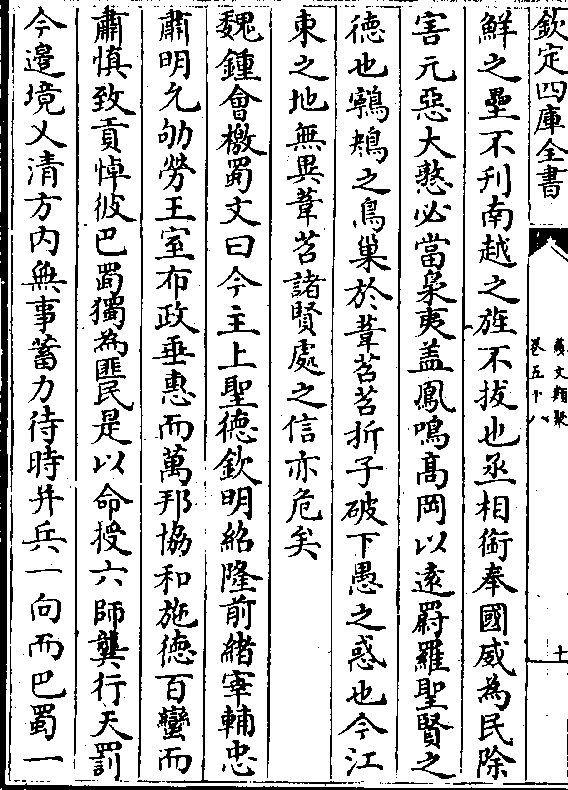 欽定四庫全書
藝文類聚
卷五十八
十
鮮之壘不刋南越之旌不拔也丞相銜奉國威為民除
害元惡大憝必當梟夷盖鳳鳴髙岡以逺罻羅聖賢之
徳也鸋鴂之鳥巢於葦苕苕折子破下愚之惑也今江
東之地無異葦苕諸賢處之信亦危矣
魏鍾會檄蜀文曰今主上聖徳欽明紹隆前緒宰輔忠
肅明允劬勞王室布政垂惠而萬邦協和施徳百蠻而
肅慎致貢悼彼巴蜀獨為匪民是以命授六師龔行天罰
今邉境乂清方内無事蓄力待時并兵一向而巴蜀一